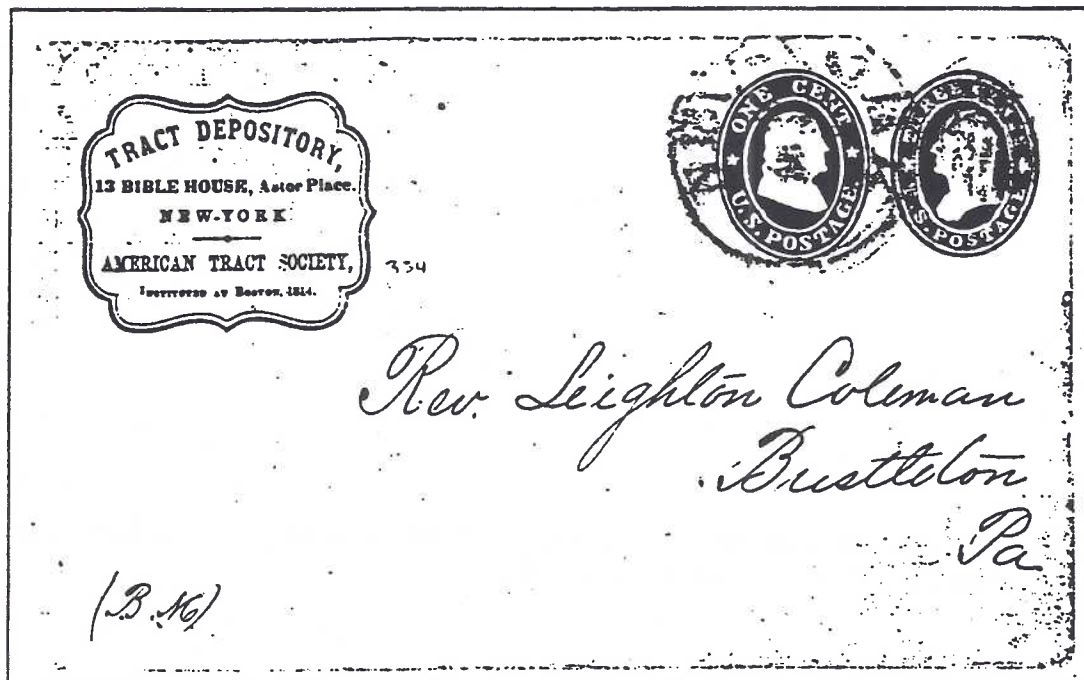 TRACT DEPOSITORY,
13 BIBLE HOUSE, Astor Place.
NEW-YORK
AMERICAN TRACT SOCIETY,
INSTITUTED AT BOSTON, 1814.
334
ONE CENT
U.S. POSTAGE
THREE CENTS
U.S. POSTAGE
Rev. Leighton Coleman
Bustleton
Pa